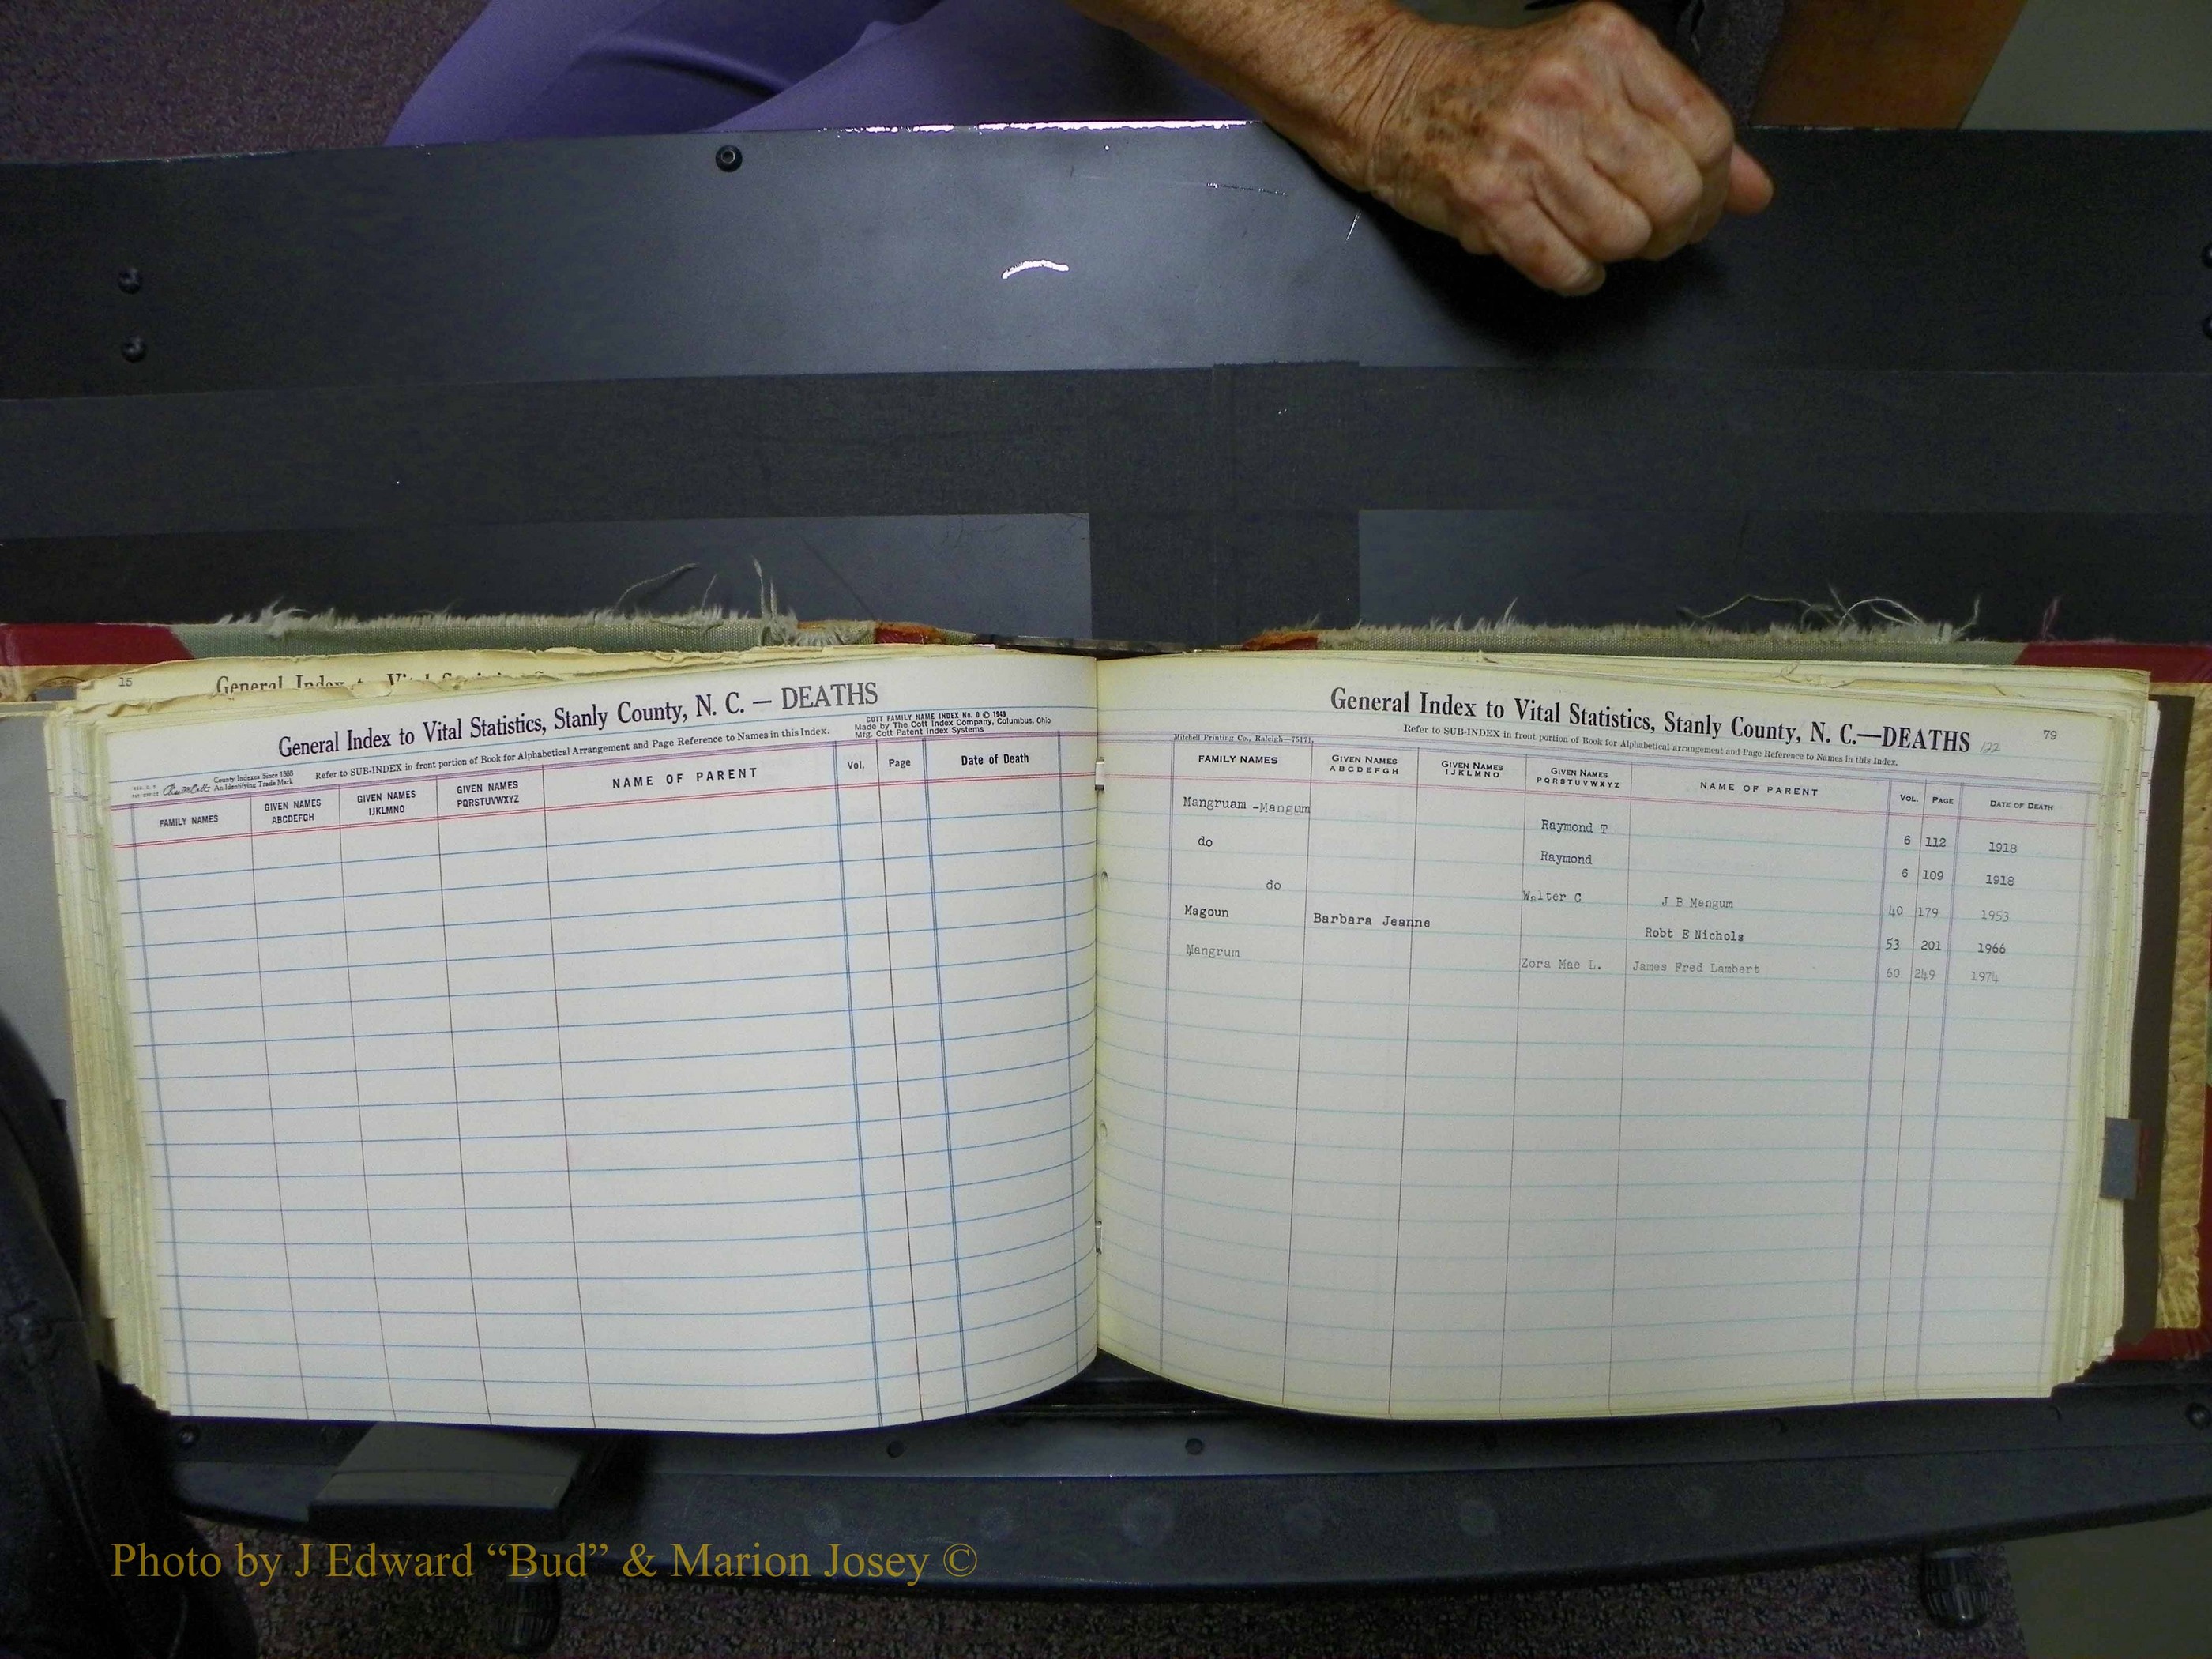 15
General Index to Vital Statistics, Stanly County, N. C. — DEATHS
COTT FAMILY NAME INDEX No. 8 © 1949
Made by The Cott Index Company, Columbus, Ohio
Mfg. Cott Patent Index Systems
Refer to SUB-INDEX in front portion of Book for Alphabetical Arrangement and Page Reference to Names in this Index.
County Indexes Since 1888
An Identifying Trade Mark
FAMILY NAMES GIVEN NAMES ABCDEFGH GIVEN NAMES IJKLMNO GIVEN NAMES PQRSTUVWXYZ NAME OF PARENT Vol. Page Date of Death
General Index to Vital Statistics, Stanly County, N. C.—DEATHS 122 79
Refer to SUB-INDEX in front portion of Book for Alphabetical arrangement and Page Reference to Names in this Index.
Mitchell Printing Co., Raleigh—75171.
FAMILY NAMES GIVEN NAMES ABCDEFGH GIVEN NAMES IJKLMNO GIVEN NAMES PQRSTUVWXYZ NAME OF PARENT VOL. PAGE DATE OF DEATH
Mangruam -Mangum Raymond T 6 112 1918
do Raymond 6 109 1918
do Walter C J B Mangum 40 179 1953
Magoun Barbara Jeanne Robt E Nichols 53 201 1966
Mangrum Zora Mae L. James Fred Lambert 60 249 1974
Photo by J Edward “Bud” & Marion Josey ©